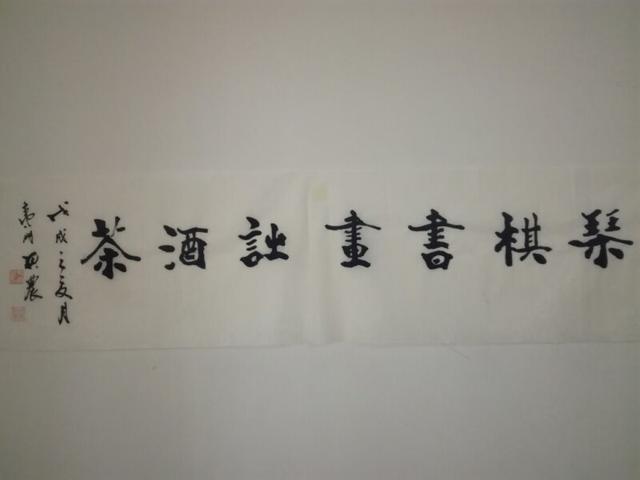 琴棋書畫詩酒茶
戊戌之夏月
農